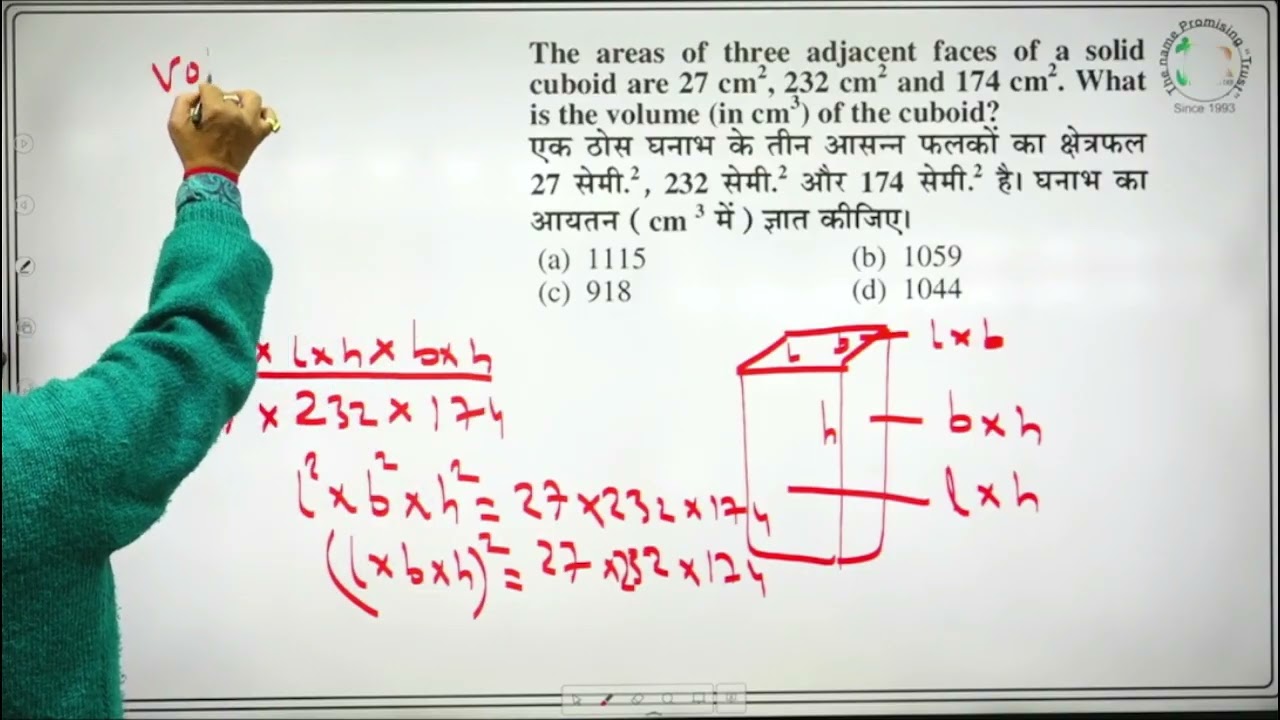 The areas of three adjacent faces of a solid
cuboid are 27 cm², 232 cm² and 174 cm². What
is the volume (in cm³) of the cuboid?
एक ठोस घनाभ के तीन आसन्न फलकों का क्षेत्रफल
27 सेमी.², 232 सेमी.² और 174 सेमी.² है। घनाभ का
आयतन ( cm ³ में ) ज्ञात कीजिए।
(a) 1115 (b) 1059
(c) 918 (d) 1044
The name Promising "Trust"
Since 1993
Vo
× l×h × b×h
× 232 × 174
l² × b² × h² = 27 × 232 × 174
(l×b×h)² = 27 × 232 × 174
l b
h
l×b
b×h
l×h